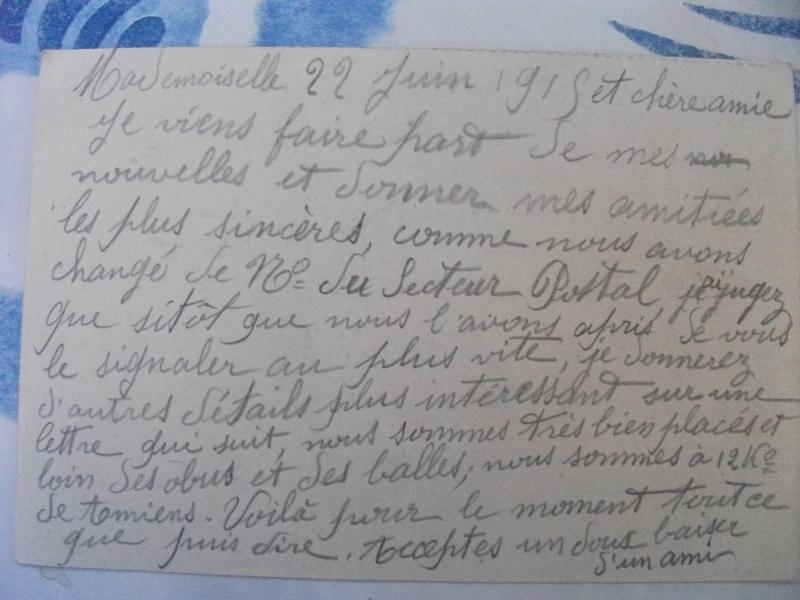 Mademoiselle 22 Juin 1915 et chère amie
Je viens faire part de mes
nouvelles et donner mes amitiées
les plus sincères, comme nous avons
changé de No du Secteur Postal, j'ai jugez
que sitôt que nous l'avons apris, de vous
le signaler au plus vite, je donnerez
d'autres détails plus intéressant sur une
lettre qui suit, nous sommes très bien placés et
loin des obus et des balles, nous sommes à 12 Ko
de Amiens. Voilà pour le moment tout ce
que puis dire. Acceptes un doux baiser
d'un ami